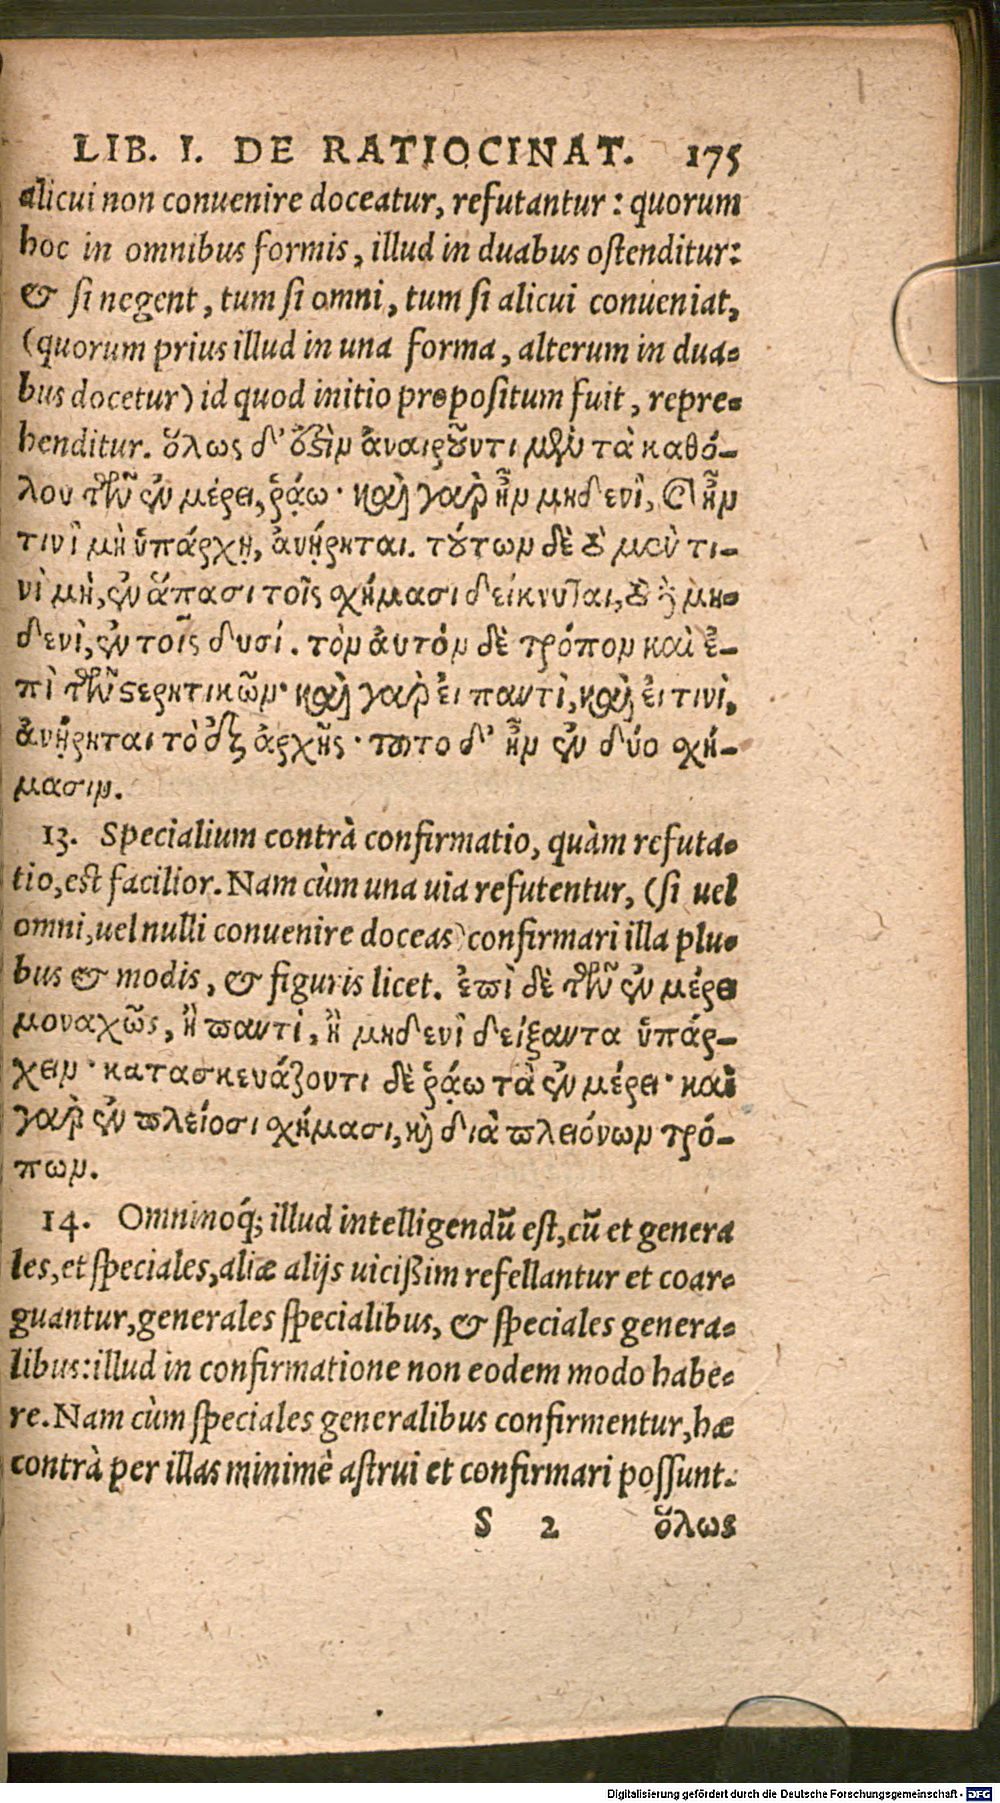 LIB. I. DE RATIOCINAT. 175
alicui non conuenire doceatur, refutantur: quorum
hoc in omnibus formis, illud in duabus ostenditur:
& si negent, tum si omni, tum si alicui conueniat,
(quorum prius illud in una forma, alterum in dua-
bus docetur) id quod initio propositum fuit, repre-
henditur. ὅλως δ' ὅξὶμ ἀναιροῦντι μὲν τὰ καθό-
λου τῶν ἐν μέρει, ῥᾴω· καὶ γὰρ ἢν μηδενὶ, καὶ ἢν
τινὶ μὴ ὑπάρχῃ, ἀνῄρηται. τούτων δὲ τὸ μὲν τι-
νὶ μὴ, ἐν ἅπασι τοῖς σχήμασι δείκνυται, τὸ δὲ μη-
δενὶ, ἐν τοῖς δυσί. τὸν αὐτὸν δὲ τρόπον καὶ ἐ-
πὶ τῶν στερητικῶν· καὶ γὰρ εἰ παντὶ, καὶ εἰ τινὶ,
ἀνῄρηται τὸ ἐξ ἀρχῆς· τοῦτο δ' ἦν ἐν δύο σχή-
μασιν.
13. Specialium contrà confirmatio, quàm refuta-
tio, est facilior. Nam cùm una uia refutentur, (si uel
omni, uel nulli conuenire doceas) confirmari illa plu-
bus & modis, & figuris licet. ἐπὶ δὲ τῶν ἐν μέρει
μοναχῶς, ἢ παντὶ, ἢ μηδενὶ δείξαντα ὑπάρ-
χειν· κατασκευάζοντι δὲ ῥᾴω τὰ ἐν μέρει· καὶ
γὰρ ἐν πλείοσι σχήμασι, καὶ διὰ πλειόνων τρό-
πων.
14. Omninoq́; illud intelligendũ est, cũ et genera
les, et speciales, aliæ alijs uicißim refellantur et coar-
guantur, generales specialibus, & speciales genera-
libus: illud in confirmatione non eodem modo habe-
re. Nam cùm speciales generalibus confirmentur, hæ
contrà per illas minimè astrui et confirmari possunt.
S 2 ὅλως
Digitalisierung gefördert durch die Deutsche Forschungsgemeinschaft - DFG